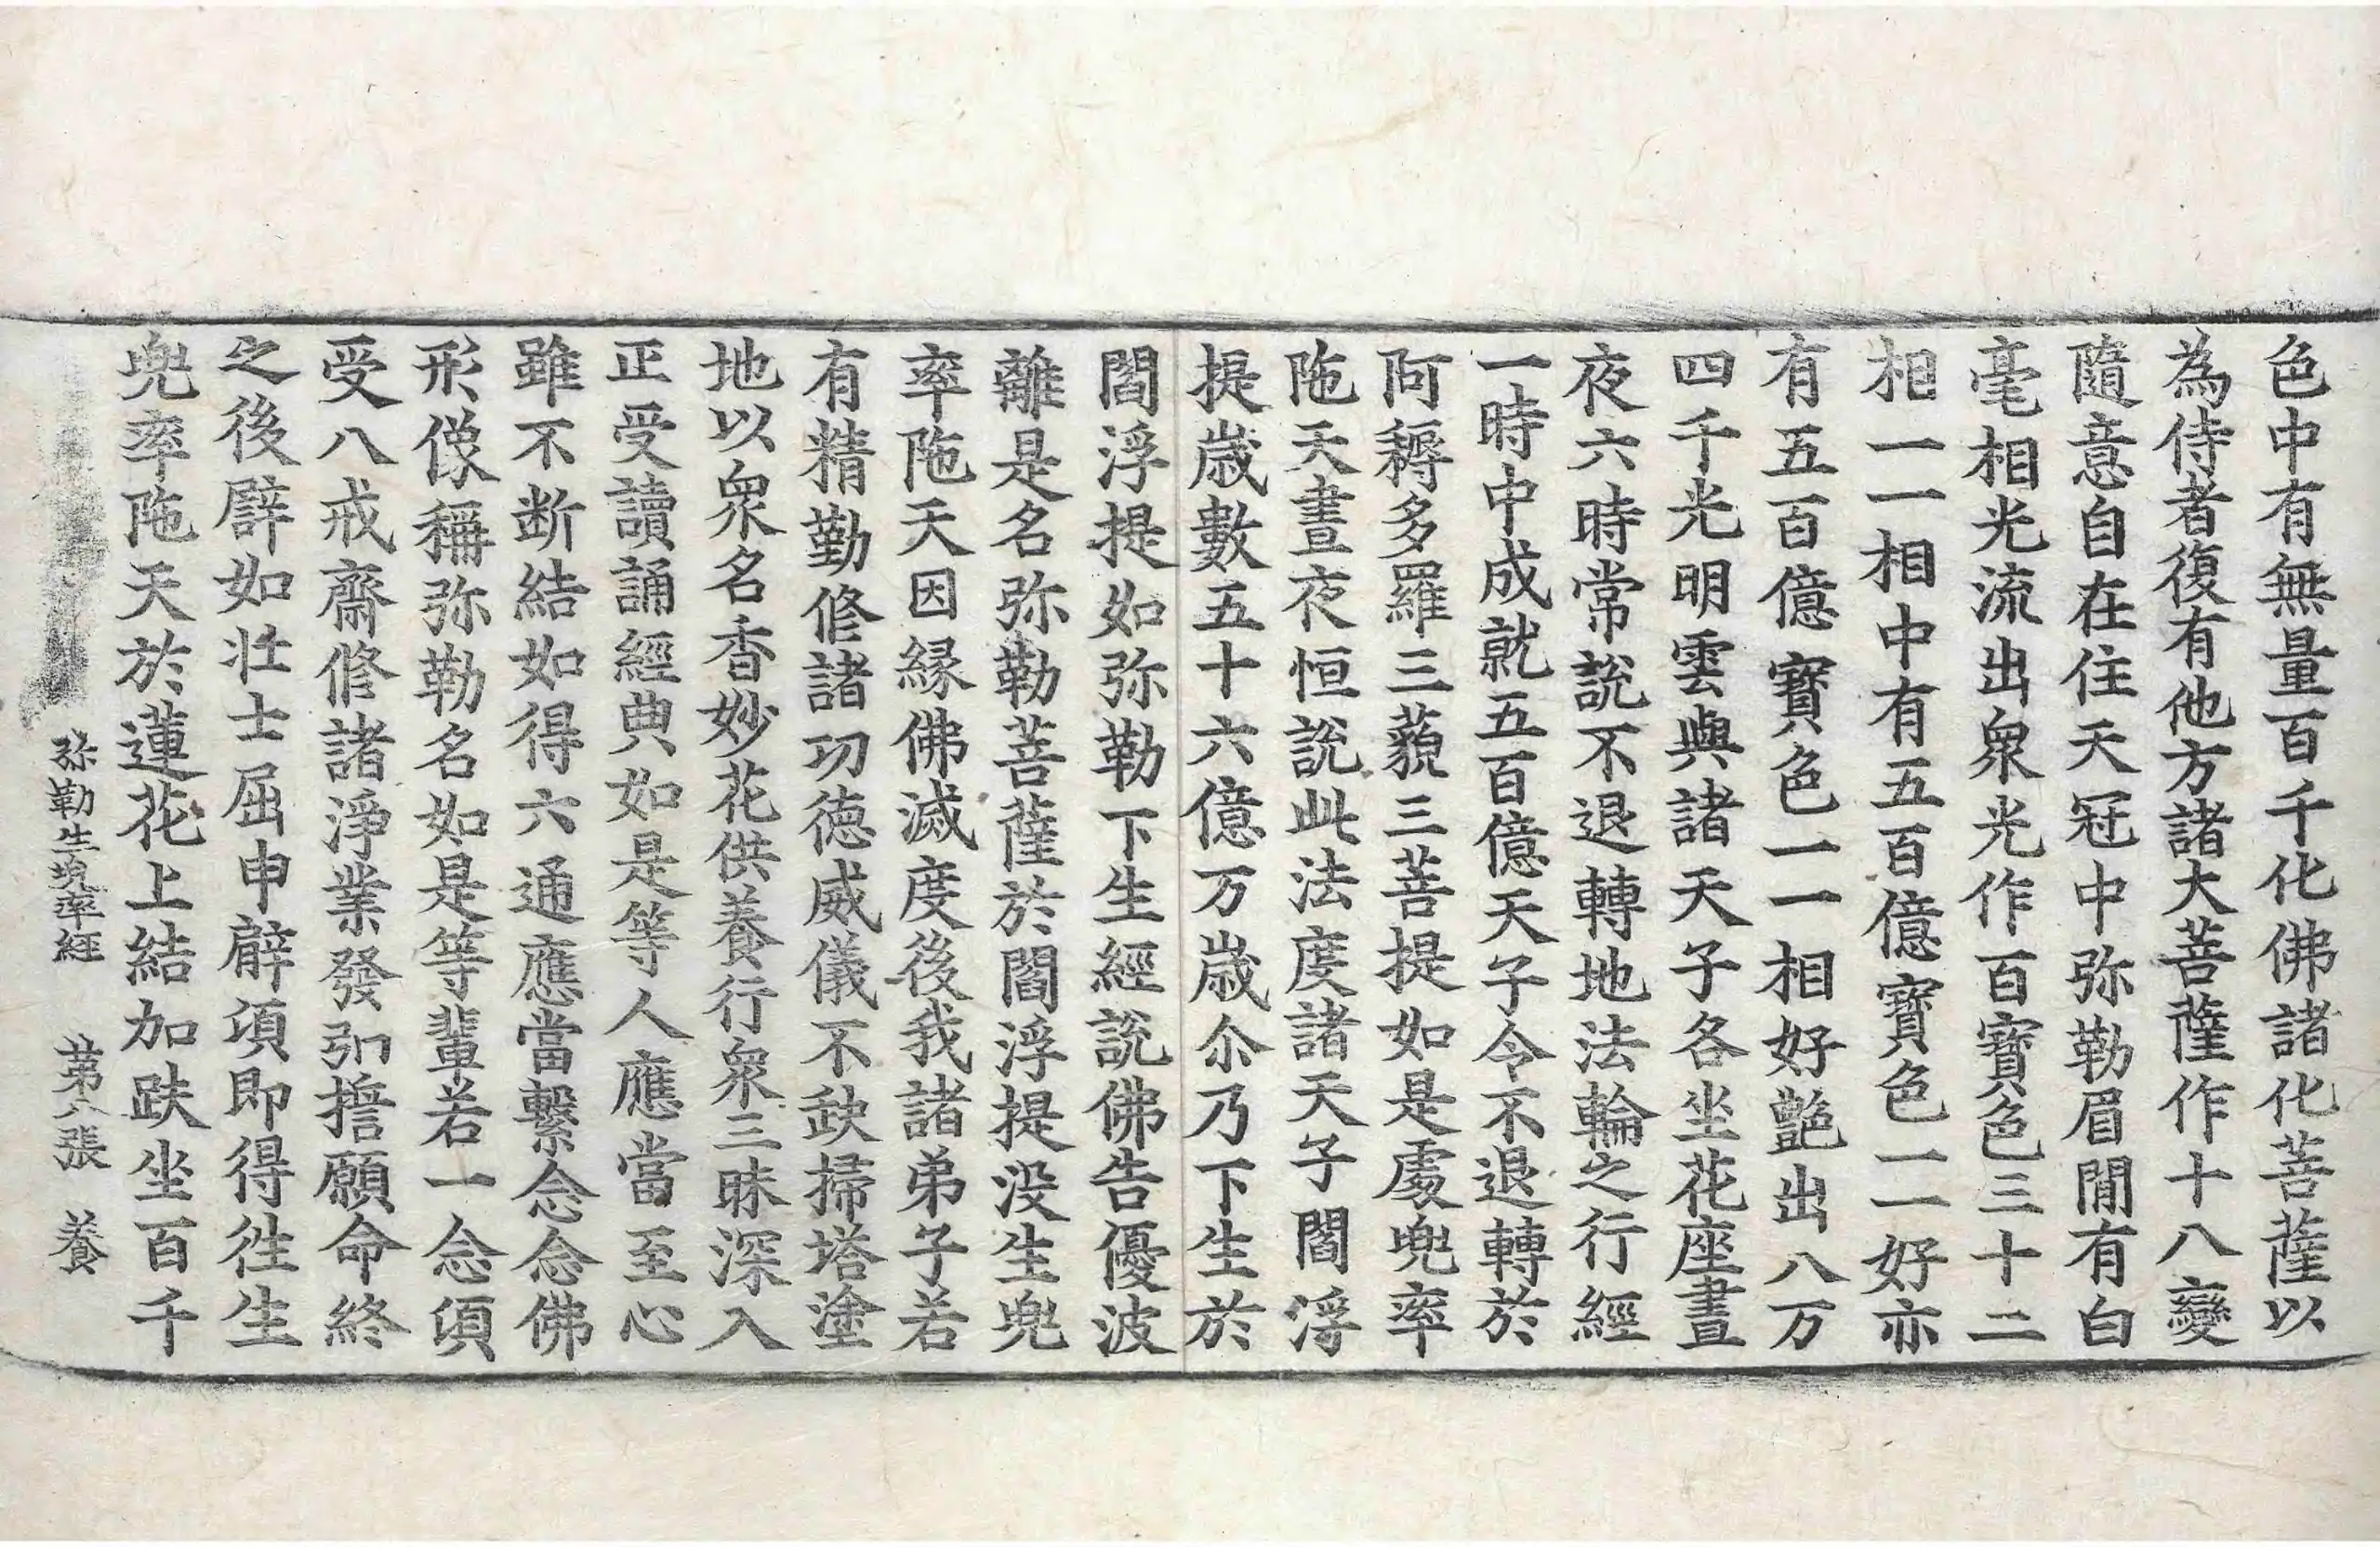 色中有無量百千化佛諸化菩薩以
為侍者復有他方諸大菩薩作十八變
隨意自在住天冠中弥勒眉閒有白
毫相光流出衆光作百寶色三十二
相一一相中有五百億寶色一一好亦
有五百億寶色一一相好艶出八万
四千光明雲與諸天子各坐花座晝
夜六時常說不退轉地法輪之行經
一時中成就五百億天子令不退轉於
阿耨多羅三藐三菩提如是處兜率
陁天晝夜恒說此法度諸天子閻浮
提歲數五十六億万歲尒乃下生於
閻浮提如弥勒下生經說佛告優波
離是名弥勒菩薩於閻浮提没生兜
率陁天因緣佛滅度後我諸弟子若
有精勤修諸功徳威儀不缺掃塔塗
地以衆名香妙花供養行衆三昧深入
正受讀誦經典如是等人應當至心
雖不断結如得六通應當繫念念佛
形像稱弥勒名如是等輩若一念須
受八戒齋修諸淨業發弘擔願命終
之後譬如壮士屈申臂項即得徃生
兜率陁天於蓮花上結加趺坐百千
弥勒生兜率經 第六張 養